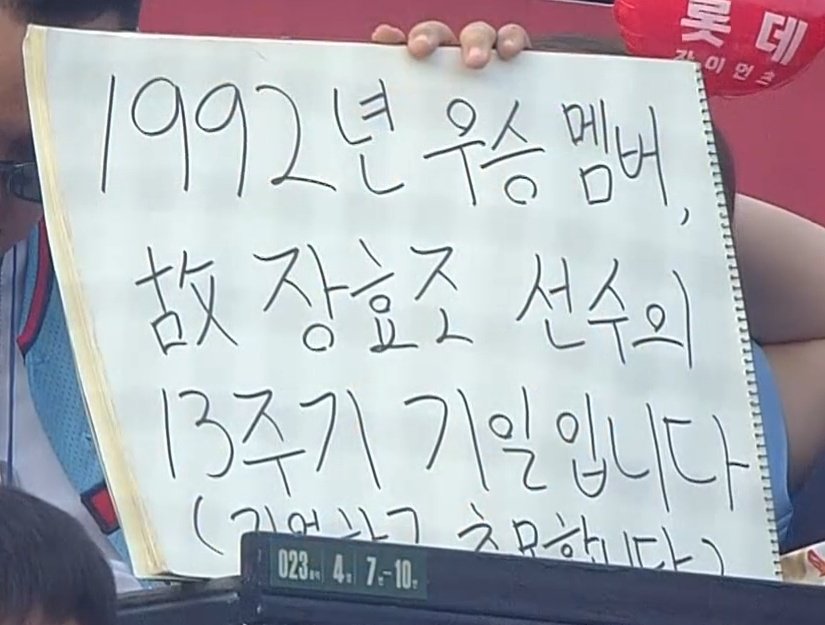 롯데
자이언츠
1992년 우승 멤버,
故 장효조 선수의
13주기 기일입니다
(기억하고 추모합니다)
023 4 7-10